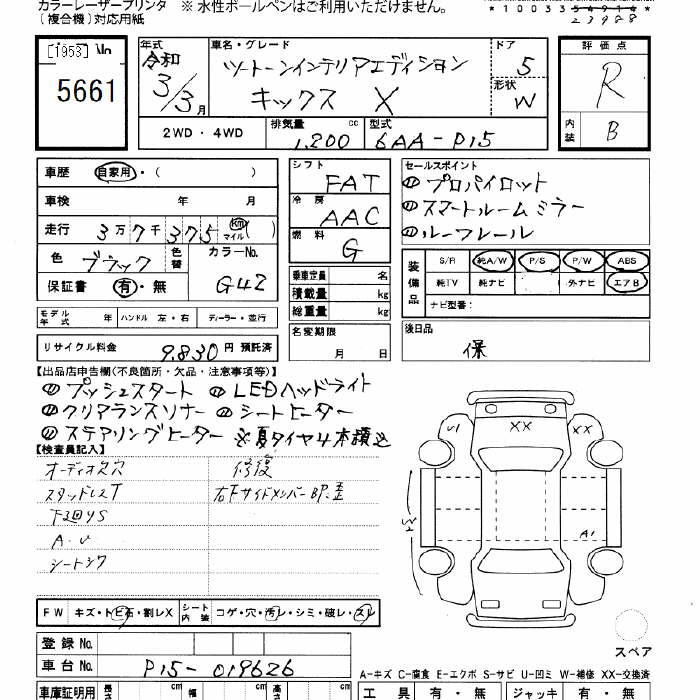 カラーレーザープリンタ ※ 水性ボールペンはご利用いただけません。
(複合機)対応用紙
*10033
[1953]
5661
年式
令和
3/3月
車名・グレード
ツートーンインテリアエディション
キックス X
ドア
5
形状
W
評価点
R
内装
B
2WD・4WD
排気量
1,200 cc
型式
6AA-P15
車歴 自家用・( )
車検 年 月
走行 3万7千375 km マイル( )
色 ブラック 色替 カラーNo.
G42
保証書 有・無
モデル年式 年 ハンドル 左・右 ディーラー・並行
リサイクル料金 9,830円 預託済
シフト
FAT
冷房
AAC
燃料
G
乗車定員 名
積載量 kg
総重量 kg
名変期限
月 日
セールスポイント
プロパイロット
スマートルームミラー
ルーフレール
装備品
S/R 純A/W P/S P/W ABS
純TV 純ナビ 外ナビ エアB
ナビ型番:
後日品
保
【出品店申告欄(不良箇所・欠品・注意事項等)】
プッシュスタート LEDヘッドライト
クリアランスソナー シートヒーター
ステアリングヒーター ※夏タイヤ4本積込
【検査員記入】
オーディオ穴 修復
スタッドレスT 右Fサイドメンバー BP.歪
下廻りS
A・U
シートシワ
U1 XX XX
W2
A1
FW キズ・トビ石・割レX シート内装 コゲ・穴・汚レ・シミ・破レ・スレ
スペア
登録No.
車台No. P15-019626
A-キズ C-腐食 E-エクボ S-サビ U-凹ミ W-補修 XX-交換済
車庫証明用 長さ cm 幅 cm 高さ cm
工具 有・無 ジャッキ 有・無